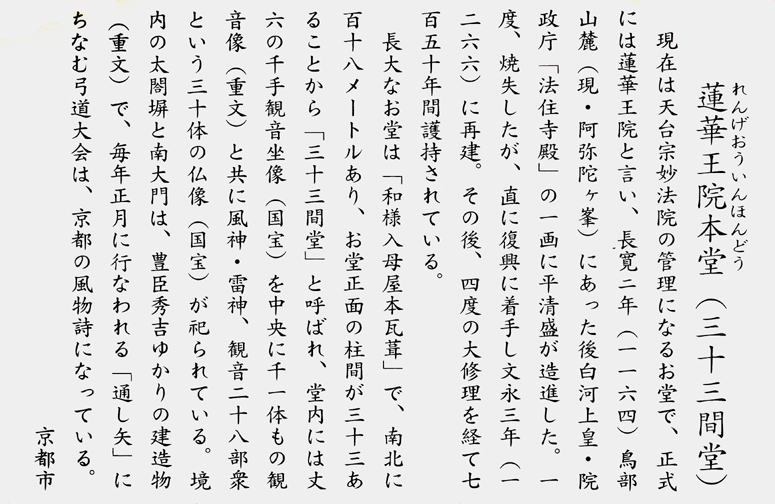 れんげおういんほんどう
蓮華王院本堂（三十三間堂）
現在は天台宗妙法院の管理になるお堂で、正式
には蓮華王院と言い、長寛二年（一一六四）鳥部
山麓（現・阿弥陀ヶ峯）にあった後白河上皇・院
政庁「法住寺殿」の一画に平清盛が造進した。一
度、焼失したが、直に復興に着手し文永三年（一
二六六）に再建。その後、四度の大修理を経て七
百五十年間護持されている。
長大なお堂は「和様入母屋本瓦葺」で、南北に
百十八メートルあり、お堂正面の柱間が三十三あ
ることから「三十三間堂」と呼ばれ、堂内には丈
六の千手観音坐像（国宝）を中央に千一体もの観
音像（重文）と共に風神・雷神、観音二十八部衆
という三十体の仏像（国宝）が祀られている。境
内の太閤塀と南大門は、豊臣秀吉ゆかりの建造物
（重文）で、毎年正月に行なわれる「通し矢」に
ちなむ弓道大会は、京都の風物詩になっている。
京都市